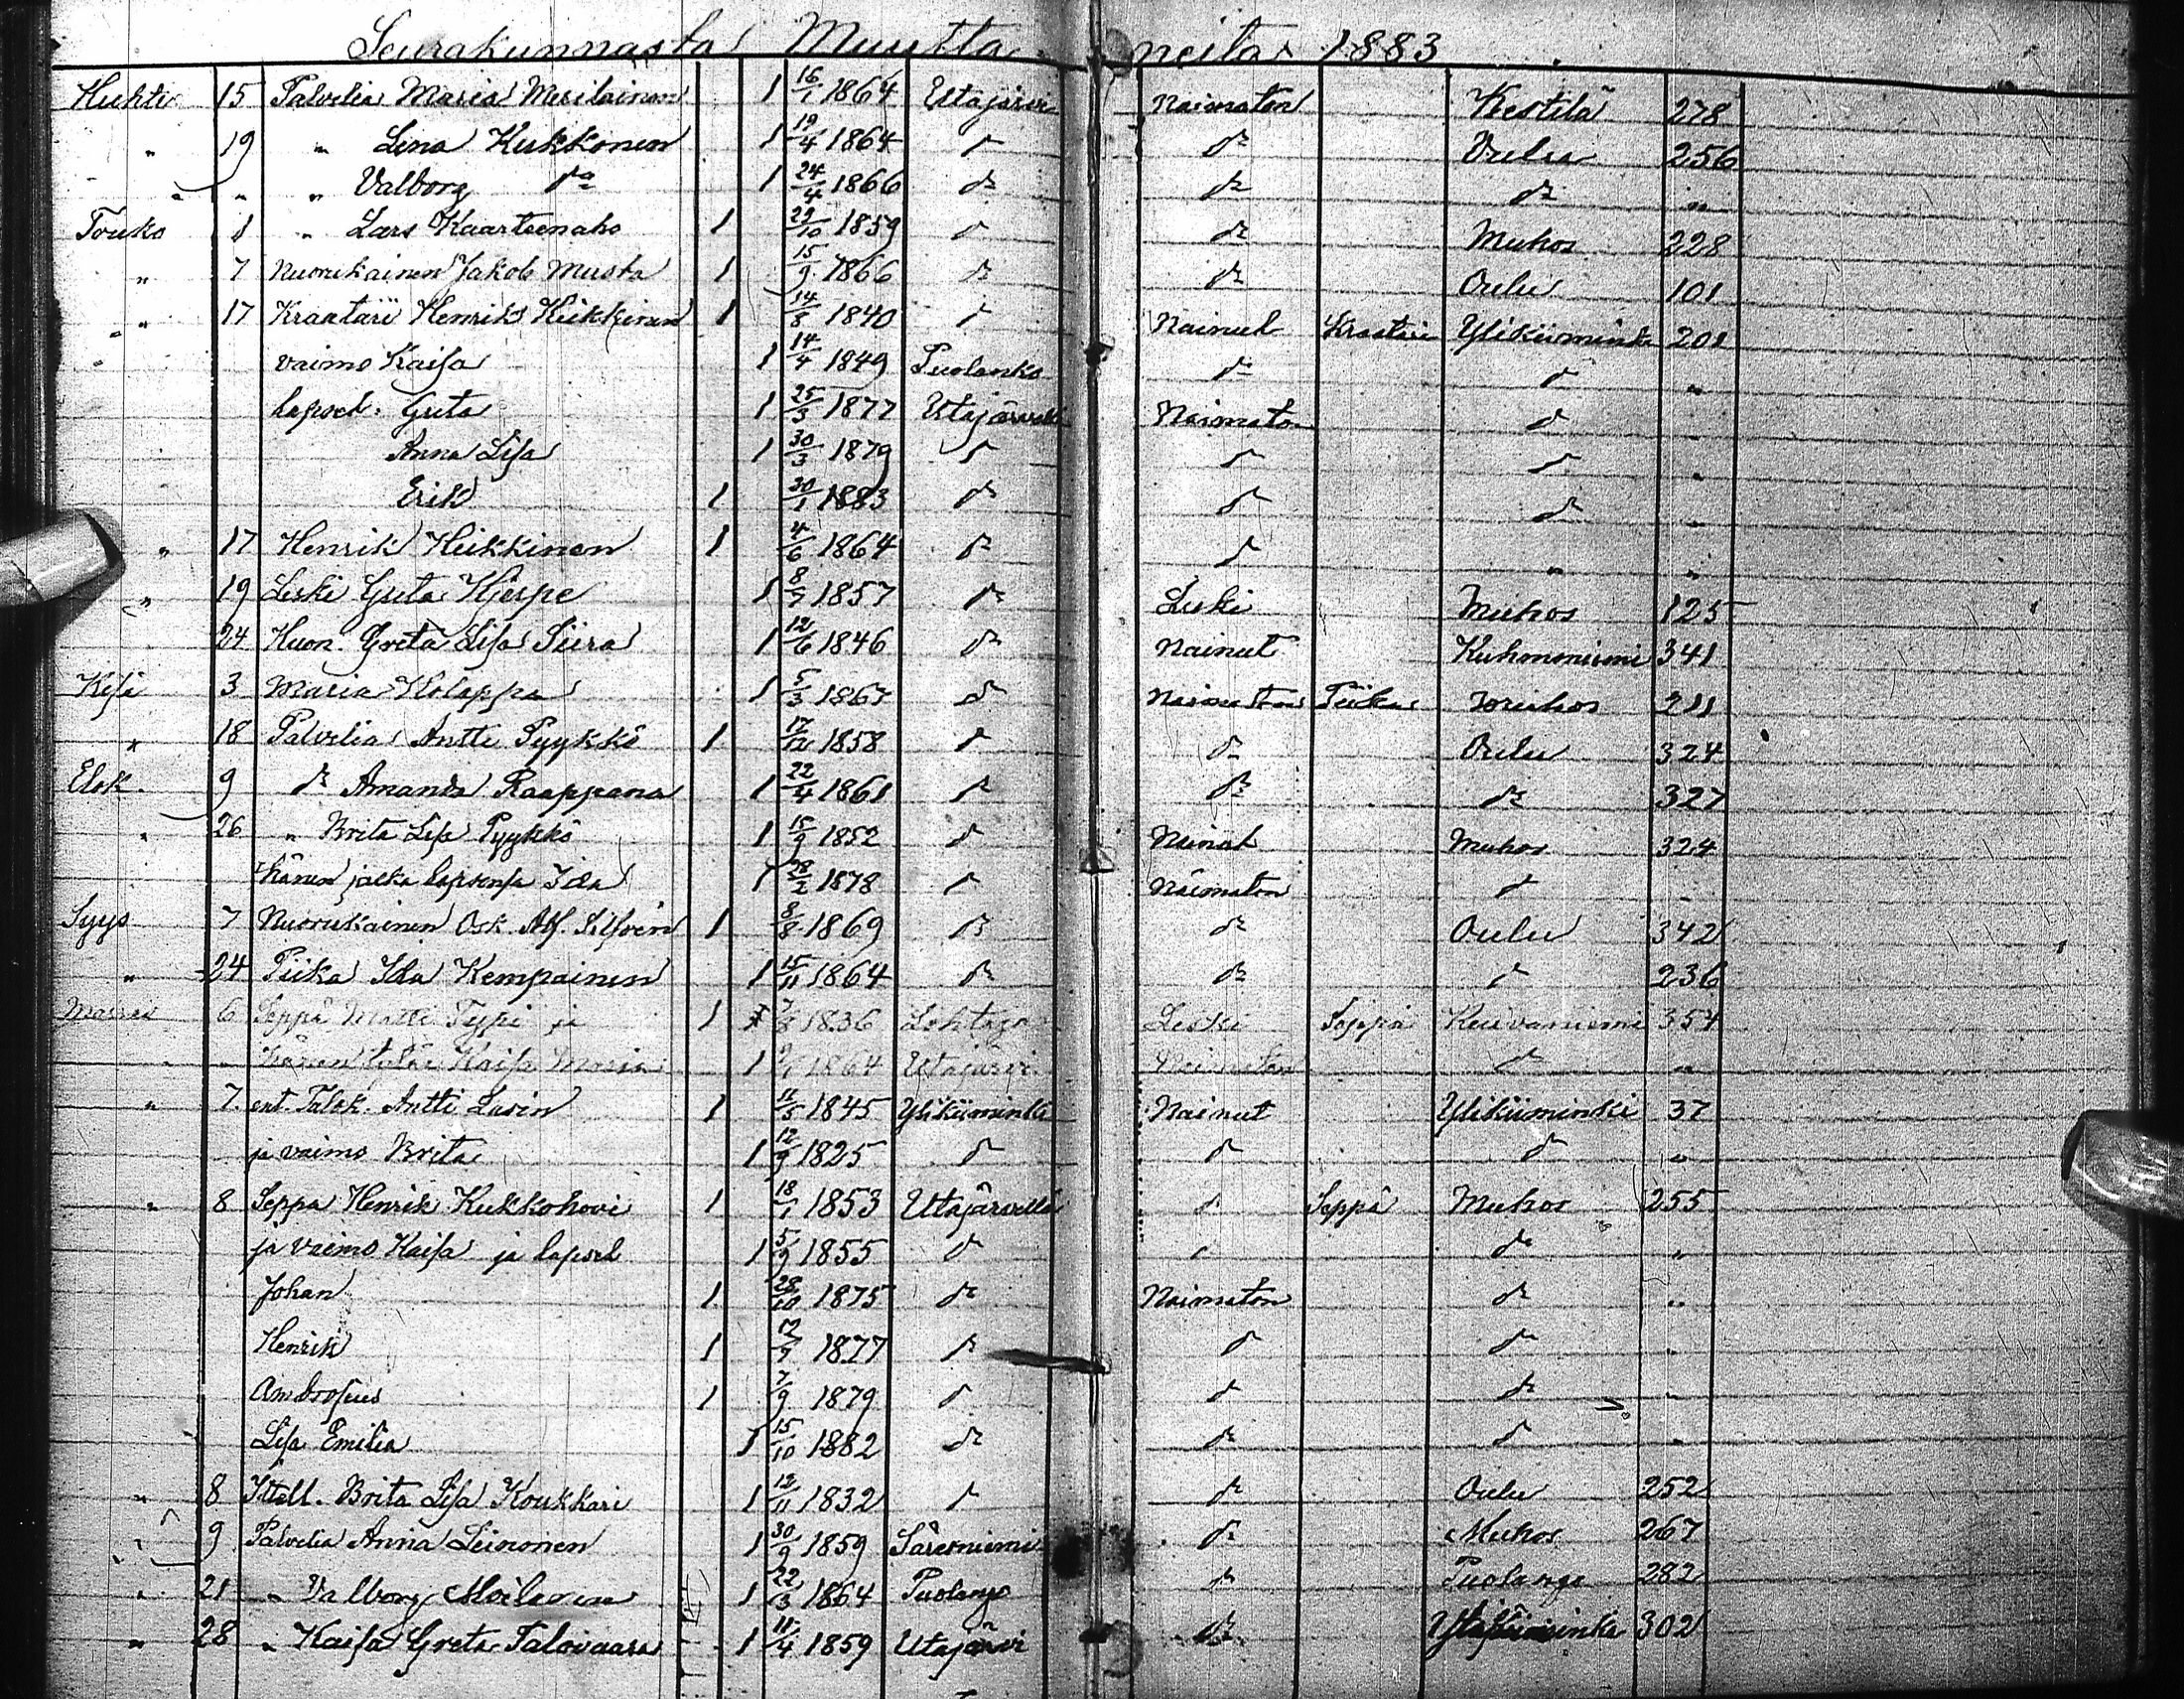 Seurakunnasta Muuttaneita 1883
Huhti 15 Palvelia Maria Meriläinen 1 16/7 1864 Utajärvi Naimaton Kestilä 278
" 19 " Lena Kukkonen 1 19/4 1864 do do Oulu 256
" " " Valborg do 1 24/4 1866 do do do "
Touko 1 " Lars Kaarteenaho 1 22/10 1859 do do Muhos 228
" 7 Nuorukainen Jakob Musta 1 15/9 1866 do do Oulu 101
" 17 Kraatari Henrik Heikkinen 1 14/8 1840 do Nainut Kraatari Ylikiiminki 201
" vaimo Kaisa 1 14/4 1849 Puolanko do do "
lapset: Greta 1 25/3 1877 Utajärvellä Naimaton do "
Anna Lisa 1 30/3 1879 do do do "
Erik 1 30/1 1883 do do do "
" 17 Henrik Heikkinen 1 4/6 1864 do do " "
" 19 Leski Greta Hjerpe 1 8/7 1857 do Leski Muhos 125
" 24 Huon. Greta Lisa Siira 1 12/6 1846 do Nainut Kuhmoniemi 341
Kesä 3 Maria Holappa 1 5/3 1867 do Naimaton Piika Muhos 211
" 18 Palvelia Antti Pyykkö 1 17/12 1858 do do Oulu 324
Elok. 9 do Amanda Raappana 1 22/4 1861 do do do 327
" 26 " Brita Lisa Pyykkö 1 15/9 1852 do Nainut Muhos 324
" hänen jalka lapsensa Ida 1 28/2 1878 do Naimaton do
Syys 7 Nuorukainen Osk. Alf. Silfvén 1 8/8 1869 do do Oulu 342
" 24 Piika Ida Kempainen 1 15/11 1864 do do do 236
Marras 6 Seppä Matti Typi ja 1 7/8 1836 Lohtaja Leski Seppä Kuivaniemi 354
" " hänen tytär Kaisa Maria 1 1864 Utajärvi Naimaton do "
" 7. ent. Talok. Antti Lasin 1 11/5 1845 Ylikiiminki Nainut Ylikiiminki 37
ja vaimo Brita 1 12/9 1825 do do do "
" 8 Seppä Henrik Kukkohovi 1 18/1 1853 Utajärvellä do Seppä Muhos 255
ja vaimo Kaisa ja lapset 1 5/9 1855 do do do "
Johan 1 28/10 1875 do Naimaton do "
Henrik 1 1877 do do do "
Ambrosius 1 7/9 1879 do do do "
Lisa Emilia 1 15/10 1882 do do do "
" 8 Itsell. Brita Lisa Koukkari 1 12/11 1832 do do Oulu 252
" 9 Palvelia Anna Leinonen 1 30/9 1859 Säresniemi do Muhos 267
" 21 " Valborg Moilanen 1 22/3 1864 Puolango do Puolango 282
" 28 " Kaisa Greta Talovaara 1 11/4 1859 Utajärvi do 302